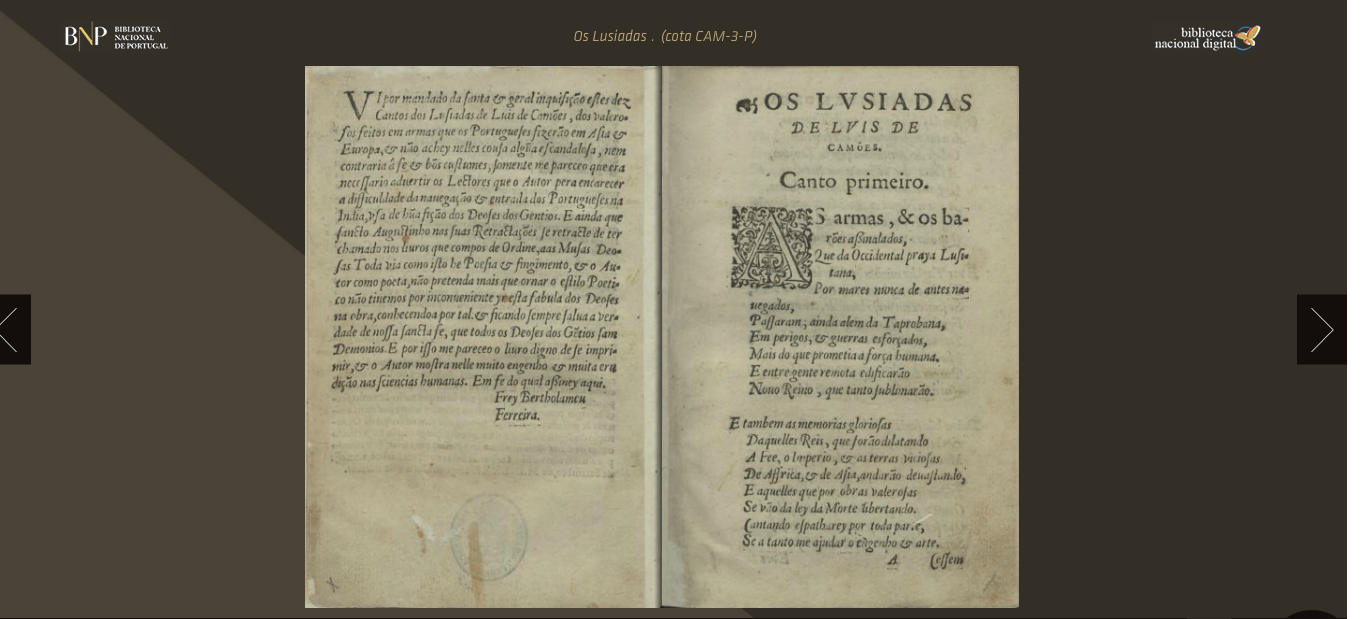 BNP BIBLIOTECA
NACIONAL
DE PORTUGAL
Os Lusiadas . (cota CAM-3-P)
biblioteca
nacional digital
VI por mandado da santa & geral inquisição estes dez
Cantos dos Lusiadas de Luis de Camões, dos valero-
sos feitos em armas que os Portugueses fizerão em Asia &
Europa, & não achey nelles cousa algũa escandalosa, nem
contraria â fe & bõs custumes, somente me pareceo que era
necessario aduertir os Lectores que o Autor pera encarecer
a difficuldade da nauegação & entrada dos Portugueses na
India, vsa de hũa fição dos Deoses dos Gentios. E ainda que
sancto Augustinho nas suas Retractações se retracte de ter
chamado nos liuros que compos de Ordine, aas Musas Deo-
sas. Toda via como isto he Poesia & fingimento, & o Au-
tor como poeta, não pretenda mais que ornar o estilo Poeti-
co não tiuemos por inconueniente yr esta fabula dos Deoses
na obra, conhecendoa por tal. & ficando sempre salua a ver-
dade de nossa sancta fe, que todos os Deoses dos Gẽtios sam
Demonios. E por isso me pareceo o liuro digno de se impri-
mir, & o Autor mostra nelle muito engenho & muita eru
dição nas sciencias humanas. Em fe do qual assiney aqui.
Frey Bertholameu
Ferreira.
OS LVSIADAS
DE LVIS DE
CAMÕES.
Canto primeiro.
AS armas, & os ba-
rões assinalados,
Que da Occidental praya Lusi-
tana,
Por mares nunca de antes na-
uegados,
Passaram, ainda alem da Taprobana,
Em perigos, & guerras esforçados,
Mais do que prometia a força humana.
E entre gente remota edificarão
Nouo Reino, que tanto sublimarão.
E tambem as memorias gloriosas
Daquelles Reis, que forão dilatando
A Fee, o Imperio, & as terras viciosas
De Affrica, & de Asia, andarão deuastando,
E aquelles que por obras valerosas
Se vão da ley da Morte libertando.
Cantando espalharey por toda parte,
Se a tanto me ajudar o engenho & arte.
A (Cessem